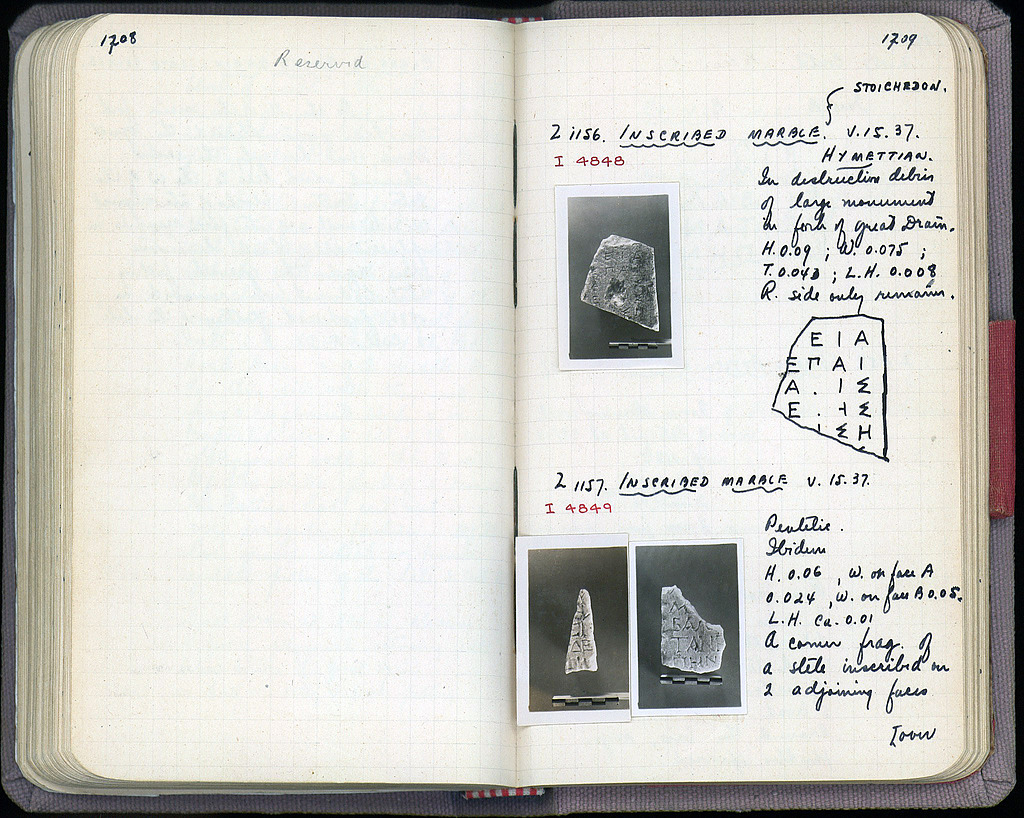 1708
Reserved
1709
STOICHEDON.
Σ 1156. INSCRIBED MARBLE. V.15.37.
I 4848
HYMETTIAN.
In destruction debris
of large monument
in fork of great Drain.
H. 0.09 ; W. 0.075 ;
T. 0.043 ; L.H. 0.008
R. side only remains.
Ε Ι Α
Ε Γ Α Ι
Α . Ι Σ
Ε . Η Σ
Ι Σ Η
Σ 1157. INSCRIBED MARBLE V.15.37.
I 4849
Pentelic.
Ibidem
H. 0.06 , W. on face A
0.024 , W. on face B 0.05.
L.H. ca. 0.01
A corner frag. of
a stele inscribed on
2 adjoining faces